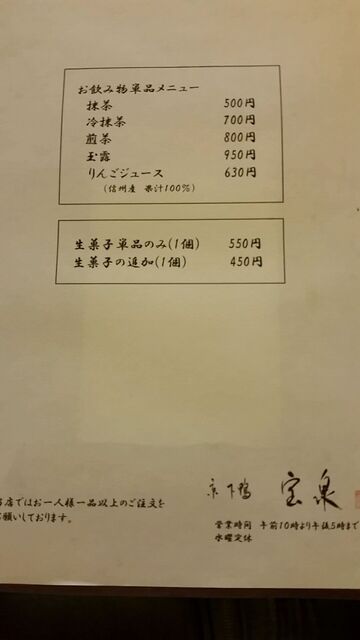 お飲み物単品メニュー
抹茶 500円
冷抹茶 700円
煎茶 800円
玉露 950円
りんごジュース 630円
(信州産 果汁100%)
生菓子単品のみ(1個) 550円
生菓子の追加(1個) 450円
京 下鴨 宝泉
店ではお一人様一品以上のご注文を
願いしております。
営業時間 午前10時より午後5時まで
水曜定休